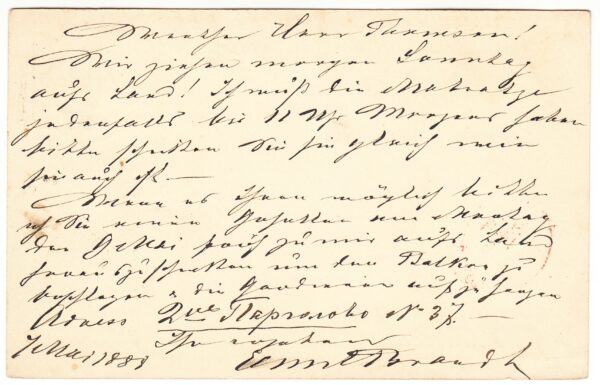 Werther Herr Thomson!
Wir ziehen morgen Sonntag
aufs Land! Ich muß die Matratze
jedenfalls bis 11 Uhr Morgens haben
bitte schicken Sie sie gleich wenn
sie auch
Wenn es Ihnen möglich bitte
ich Sie einen Gesellen am Montag
den 9 Mai früh zu mir aufs Land
herauszuschicken um den Balkon zu
die Gardinen aufzuhängen
Adress 2ое Парголово № 37. —
Ihr ergebener
7 Mai 188 E Brandt